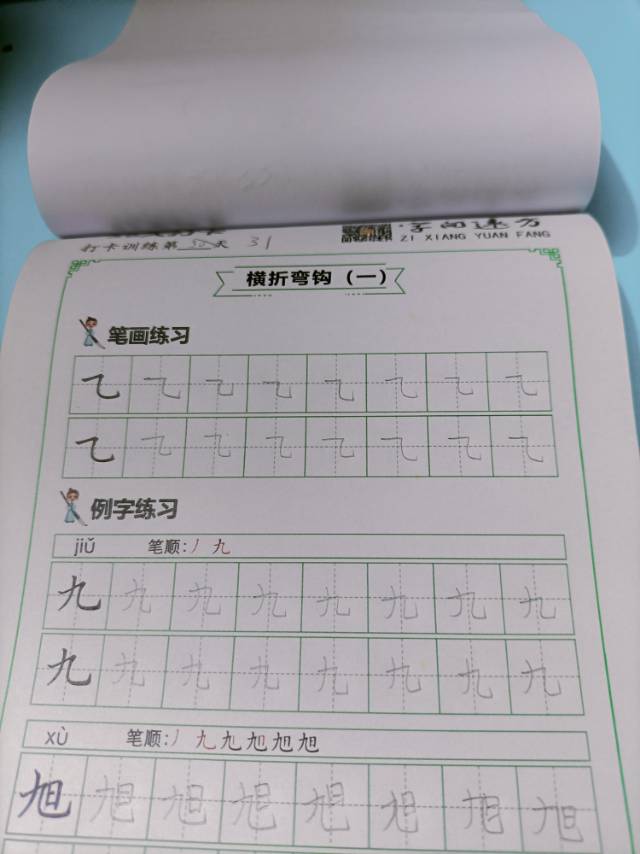 打卡训练第 天 31
字向远方
ZI XIANG YUAN FANG
横折弯钩(一)
笔画练习
㇈ ㇈ ㇈ ㇈ ㇈ ㇈ ㇈ ㇈
㇈ ㇈ ㇈ ㇈ ㇈ ㇈ ㇈ ㇈
例字练习
jiǔ 笔顺:丿 九
九 九 九 九 九 九 九 九
九 九 九 九 九 九 九 九
xù 笔顺:丿 九 九 旭 旭 旭
旭 旭 旭 旭 旭 旭 旭 旭